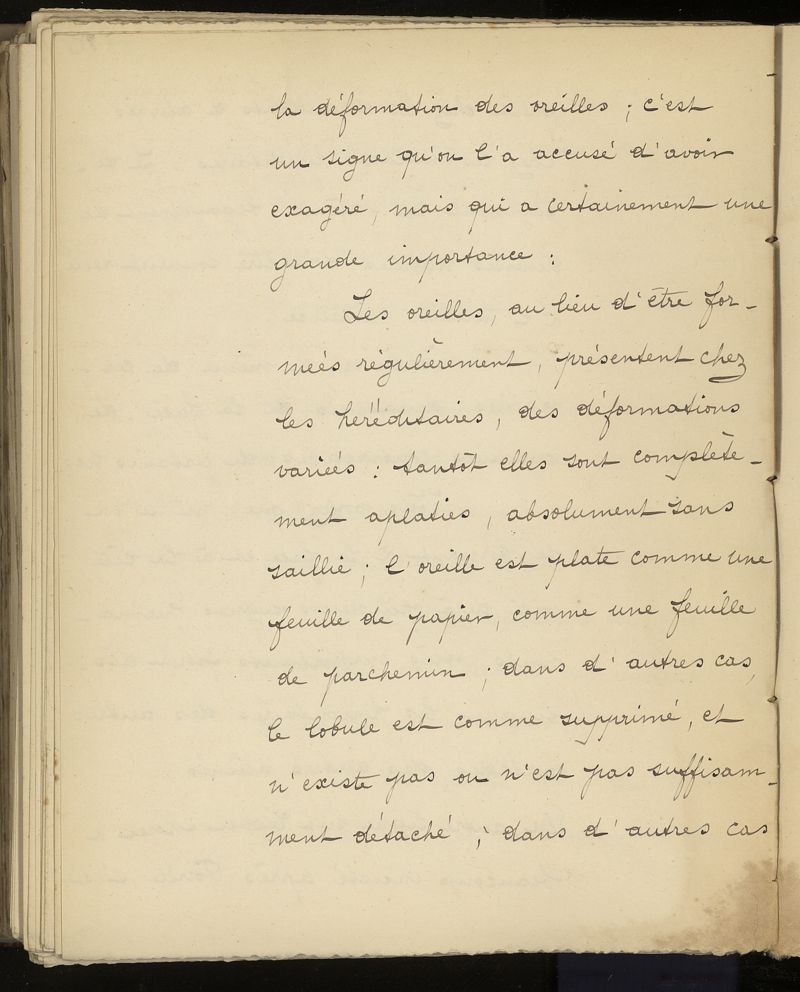 la déformation des oreilles ; c'est
un signe qu'on l'a accusé d'avoir
exagéré, mais qui a certainement une
grande importance :
Les oreilles, au lieu d'être for-
meés régulièrement, présentent chez
les heréditaires, des déformations
variées : tantôt elles sont complète-
ment aplaties, absolument sans
saillie ; l'oreille est plate comme une
feuille de papier, comme une feuille
de parchemin ; dans d'autres cas,
le lobule est comme supprimé, et
n'existe pas ou n'est pas suffisam-
ment détaché ; dans d'autres cas